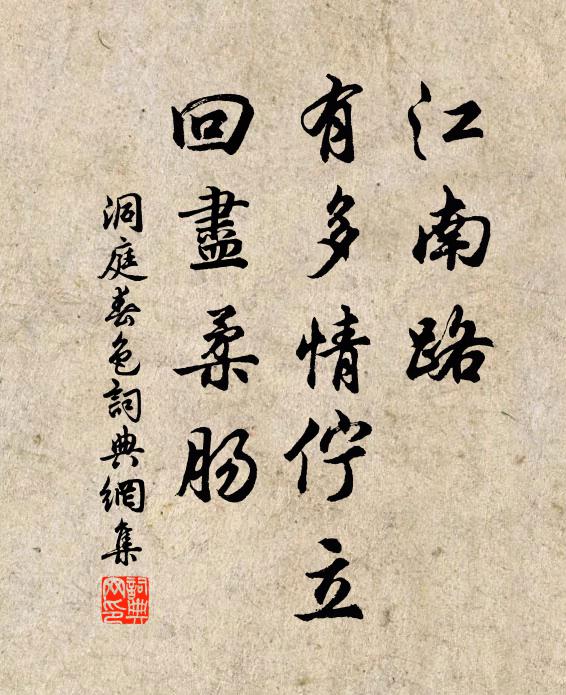 江南路
有多情佇立
回盡柔肠
洞庭春色詞典網集
詞典网印